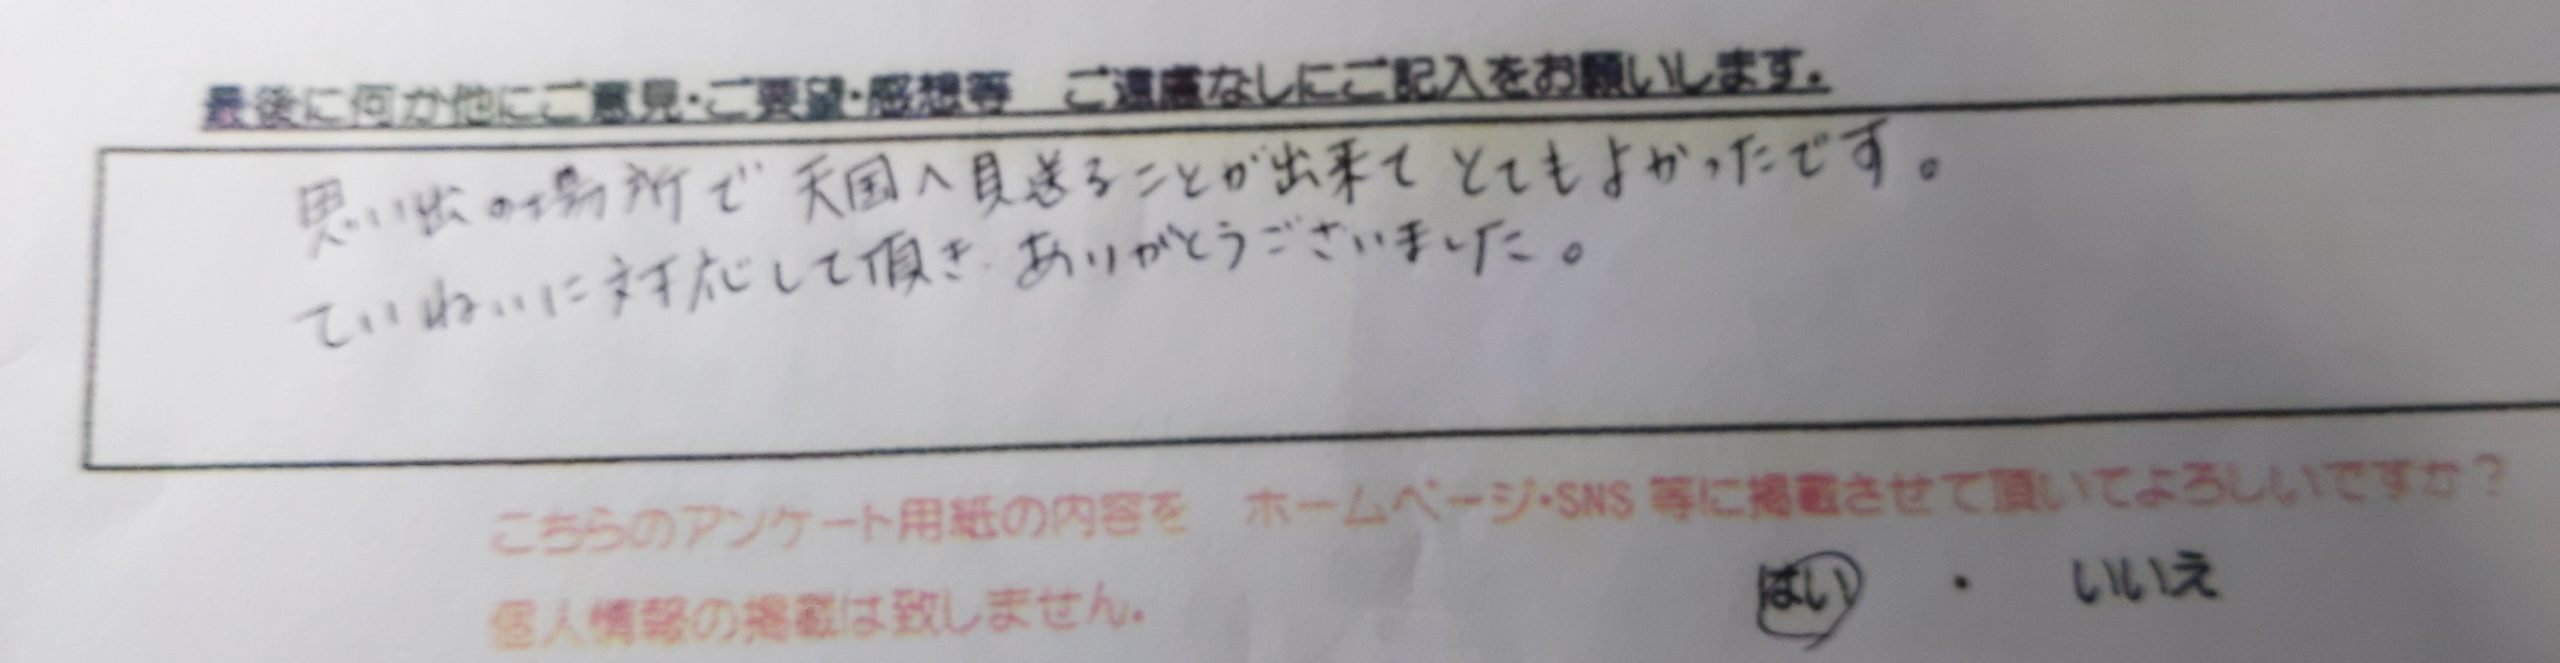 最後に何か他にご意見・ご要望・感想等　ご遠慮なしにご記入をお願いします。
思い出の場所で天国へ見送ることが出来てとてもよかったです。
ていねいに対応して頂き、ありがとうございました。
こちらのアンケート用紙の内容を　ホームページ・SNS 等に掲載させて頂いてよろしいですか？
はい　・　いいえ
個人情報の掲載は致しません。